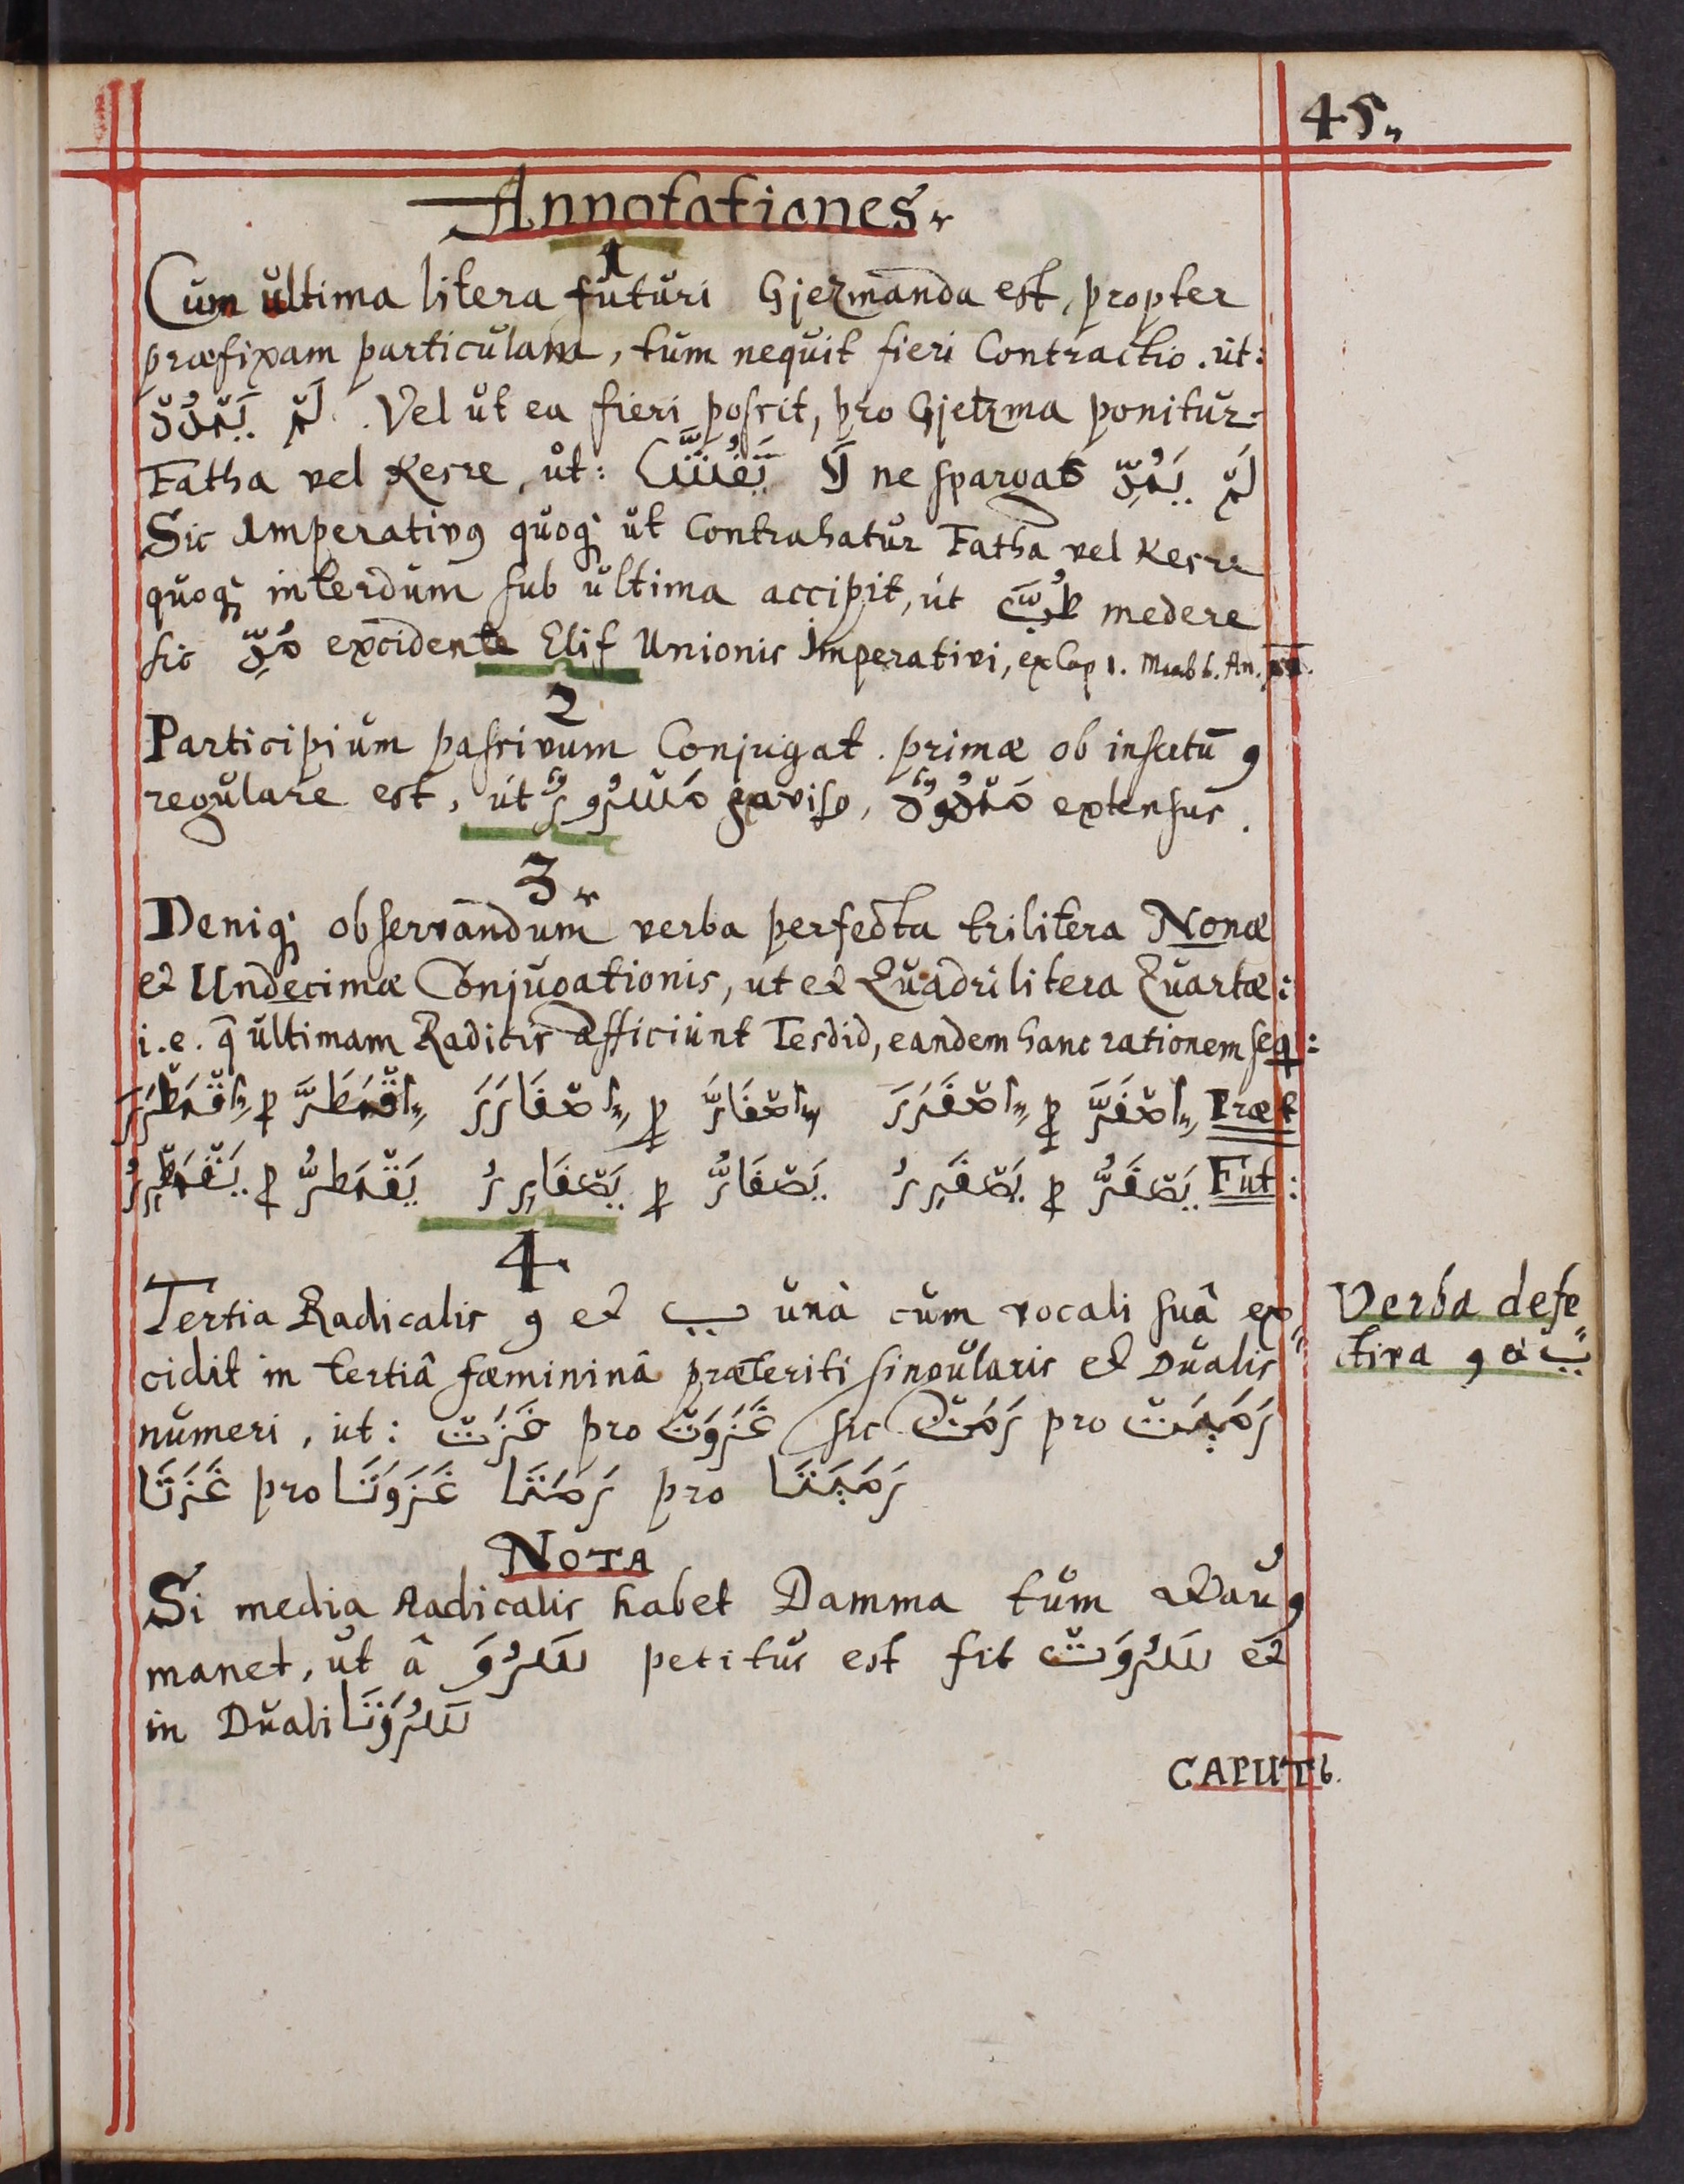 45.
Annotationes.
1
Cum ultima litera futuri Gjezmanda est, propter
præfixam particulam, tum nequit fieri Contractio. ut:
لَمْ يَمْدُدْ. Vel ut ea fieri possit, pro Gjetzma ponitur:
Fatha vel Kesre, ut: لَا ne spargat لَمْ يَمُدِّ
Sic Imperativ9 quoq; ut Contrahatur Fatha vel Kesre
quoq; interdum sub ultima accipit, ut طُبَّ medere
sic مُدِّ excidente Elif Unionis Imperativi, ex Cap 1. An.
2
Participium passivum Conjugat. primæ ob insertũ و
regulare est, ut مَسْرُورٌ gaviso, مَمْدُودٌ extensus.
3.
Deniq; observandum verba perfecta trilitera Nonæ
et Undecimæ Conjugationis, ut et Quadrilitera Quartæ:
i.e. q̃ ultimam Radicis afficiunt Tesdid, eandem hanc rationem seq:
Præt إصْفَرَّ p إصْفَرَرَ إصْفَارَّ p إصْفَارَرَ إقْمَطَرَّ p إقْمَطْرَرَ
Fut: يَصْفَرُّ p يَصْفَرِرُ يَصْفَارُّ p يَصْفَارِرُ يَقْمَطِرُّ p يَقْمَطْرِرُ
4.
Tertia Radicalis و et ي unà cum vocali suâ ex=
cidit in tertiâ fæmininâ præteriti singularis et Dualis
numeri, ut: غَزَتْ pro غَزَوَتْ sic رَمَتْ pro رَمَيَتْ
غَزَتَا pro غَزَوَتَا رَمَتَا pro رَمَيَتَا
Verba defe=
ctiva و & ي
NOTA
Si media Radicalis habet Damma tum Wau و
manet, ut â سَرُوَ petitus est fit سَرُوَتْ et
in Duali سَرُوَتَا
CAPUT 6.